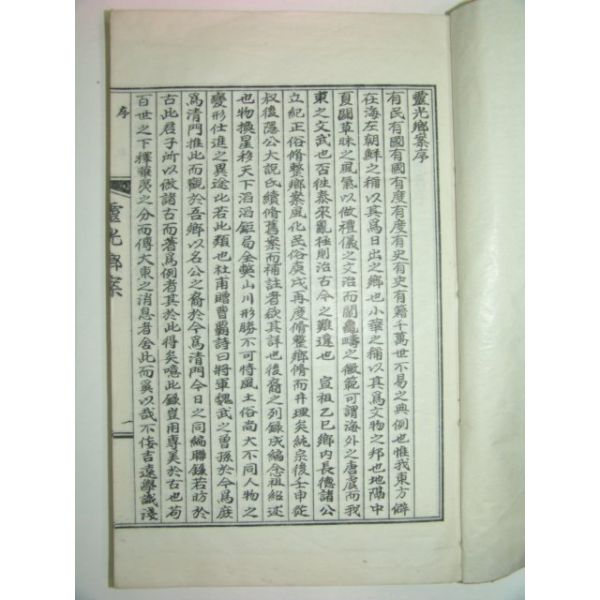 靈光鄉案序
有民有國有國有度有度有史有史有籍千萬世不易之典例也惟我東方僻
在海左朝鮮之稱以其爲日出之鄉也小華之稱以其爲文物之邦也地隔中
夏闢草昧之風氣以倣禮儀之文治而闡龜疇之徽範可謂海外之唐虞而我
東之文武也否往泰來亂極則治古今之難遑也 宣祖乙巳鄉內長德諸公
立紀正俗脩整鄉案風化民俗庚戌再度脩整鄉脩而井理矣純宗後壬申從
叔後隱公大說氏續脩舊案而補註者欲其詳也後裔之列錄成編念祖紹述
也物換星移天下滔滔鉅局全變山川形勝不可恃風土俗尚大不同人物之
變形仕進之異途比若此類也杜甫贈曹霸詩曰將軍魏武之曾孫於今爲庶
爲清門推此而觀於吾鄉以名公之裔於今爲清門今日之同編聯錄若昉於
古此君子所以倣諸古而著爲例者其於此得矣嘻此錄豈用專美於古也苟
百世之下釋雅夷之分而傳大東之消息者舍此而奚以哉不佞吉遠學識淺
序
靈光鄉案
一